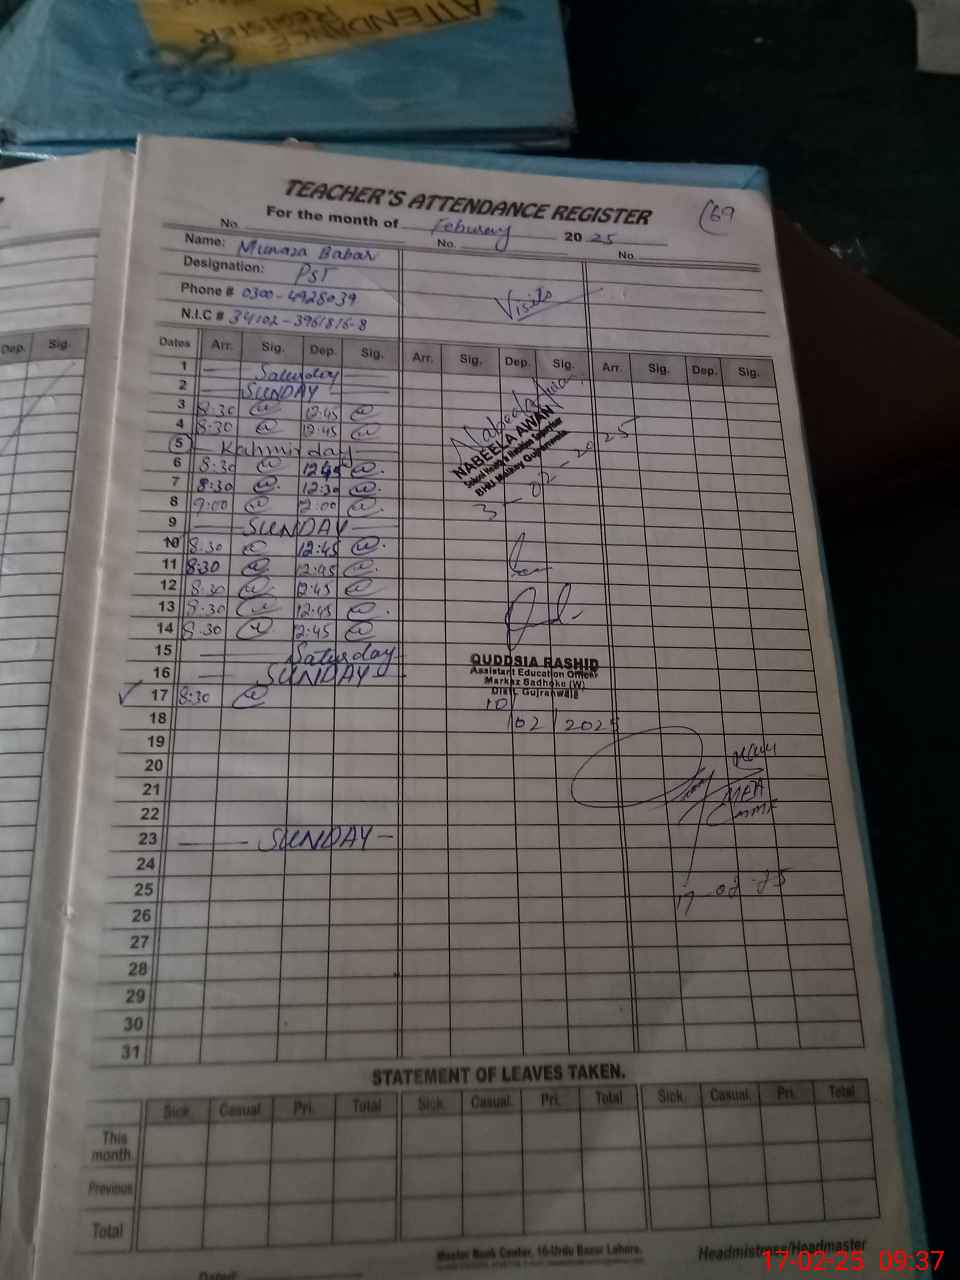 ATTENDANCE
REGISTER
TEACHER'S ATTENDANCE REGISTER
(69
For the month of Feburary 2025
No. No. No.
Name: Munaza Babar
Designation: PST
Phone # 0300-4928039
N.I.C # 34102-3961816-8
Visits
Dep. Sig.
Dates Arr. Sig. Dep. Sig. Arr. Sig. Dep. Sig. Arr. Sig. Dep. Sig.
1 Saturday
2 SUNDAY
3 8:30 12:45
4 8:30 12:45
5 Kahmir day
6 8:30 12:45
7 8:30 12:30
8 9:00 2:00
9 SUNDAY
10 8:30 12:45
11 8:30 12:45
12 8:30 12:45
13 8:30 12:45
14 8:30 12:45
15 Saturday
16 SUNDAY
17 8:30
18
19
20
21
22
23 SUNDAY
24
25
26
27
28
29
30
31
Nabeela Awan
NABEELA AWAN
School Health & Nutrition Supervisor
3-02-2025
QUDDSIA RASHID
Assistant Education Officer
Markaz Sadhoke (W)
Distt. Gujranwala
10/02/2025
MEA
17-02-25
STATEMENT OF LEAVES TAKEN.
Sick. Casual. Pri. Total Sick. Casual. Pri. Total Sick. Casual. Pri. Total
This month.
Previous
Total
Master Book Center, 16-Urdu Bazar Lahore.
Headmistress/Headmaster
Dated:
17-02-25 09:37